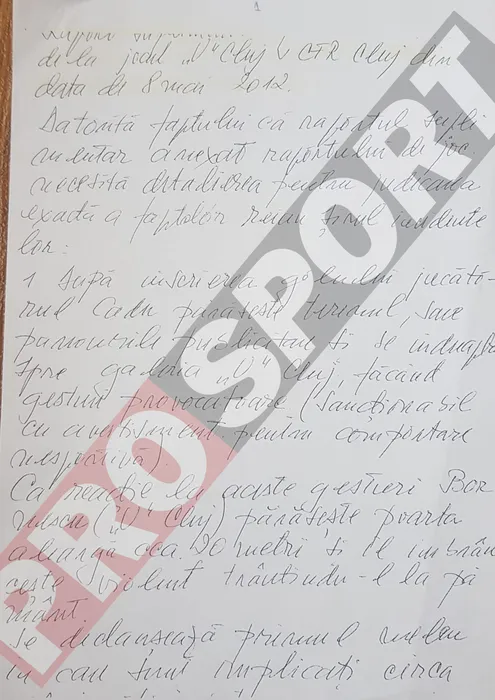 1
Raport suplimentar
de la jocul „U" Cluj v CFR Cluj din
data de 8 mai 2012.
Datorită faptului că raportul supli
mentar anexat raportului de joc
necesită detalierea pentru judecarea
exactă a faptelor reiau șirul incidente
lor:
1 După înscrierea golului jucăto-
rul Cadu părăsește terenul, sare
panourile publicitare și se îndreaptă
spre galeria „U" Cluj, făcând
gesturi provocatoare (sancționabil
cu avertisment pentru comportare
nesportivă).
Ca reacție la aceste gesturi Bor
nescu („U" Cluj) părăsește poarta
aleargă cca. 20 metri și îl îmbrân
cește violent trântindu-l la pă
mânt.
Se declanșează primul meleu
în care sunt implicați circa
PRO SPORT